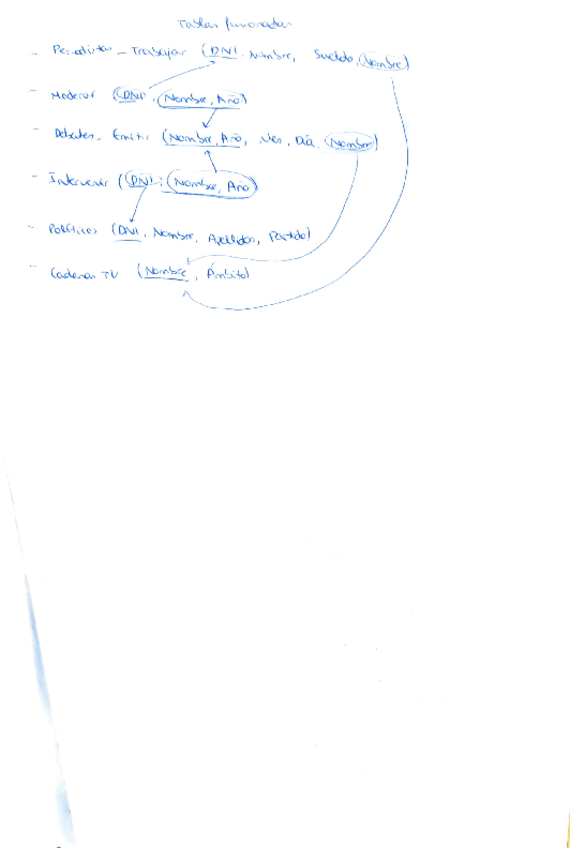 Tablas fusionadas
- Periodistas - Trabajar (DNI, Nombre, Sueldo, Nombre)
- Moderar (DNI, Nombre, Año)
- Debates - Emitir (Nombre, Año, Mes, Día, Nombre)
- Intervenir (DNI, Nombre, Año)
- Políticos (DNI, Nombre, Apellidos, Partido)
- Cadenas TV (Nombre, Ámbito)